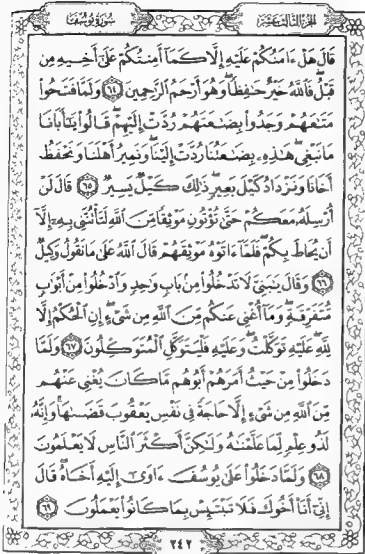 سُورَةُ يُوسُفَ
الجُزْءُ الثَّالِثَ عَشَرَ
قَالَ هَلْ ءَامَنُكُمْ عَلَيْهِ إِلَّا كَمَآ أَمِنتُكُمْ عَلَىٰٓ أَخِيهِ مِن
قَبْلُ فَٱللَّهُ خَيْرٌ حَـٰفِظًا وَهُوَ أَرْحَمُ ٱلرَّٰحِمِينَ ٦٤ وَلَمَّا فَتَحُوا۟
مَتَـٰعَهُمْ وَجَدُوا۟ بِضَـٰعَتَهُمْ رُدَّتْ إِلَيْهِمْ قَالُوا۟ يَـٰٓأَبَانَا
مَا نَبْغِى هَـٰذِهِۦ بِضَـٰعَتُنَا رُدَّتْ إِلَيْنَا وَنَمِيرُ أَهْلَنَا وَنَحْفَظُ
أَخَانَا وَنَزْدَادُ كَيْلَ بَعِيرٍ ذَٰلِكَ كَيْلٌ يَسِيرٌ ٦٥ قَالَ لَنْ
أُرْسِلَهُۥ مَعَكُمْ حَتَّىٰ تُؤْتُونِ مَوْثِقًا مِّنَ ٱللَّهِ لَتَأْتُنَّنِى بِهِۦٓ إِلَّآ
أَن يُحَاطَ بِكُمْ فَلَمَّآ ءَاتَوْهُ مَوْثِقَهُمْ قَالَ ٱللَّهُ عَلَىٰ مَا نَقُولُ وَكِيلٌ
٦٦ وَقَالَ يَـٰبَنِىَّ لَا تَدْخُلُوا۟ مِنۢ بَابٍ وَٰحِدٍ وَٱدْخُلُوا۟ مِنْ أَبْوَٰبٍ
مُّتَفَرِّقَةٍ وَمَآ أُغْنِى عَنكُم مِّنَ ٱللَّهِ مِن شَىْءٍ إِنِ ٱلْحُكْمُ إِلَّا
لِلَّهِ عَلَيْهِ تَوَكَّلْتُ وَعَلَيْهِ فَلْيَتَوَكَّلِ ٱلْمُتَوَكِّلُونَ ٦٧ وَلَمَّا
دَخَلُوا۟ مِنْ حَيْثُ أَمَرَهُمْ أَبُوهُم مَّا كَانَ يُغْنِى عَنْهُم
مِّنَ ٱللَّهِ مِن شَىْءٍ إِلَّا حَاجَةً فِى نَفْسِ يَعْقُوبَ قَضَىٰهَا وَإِنَّهُۥ
لَذُو عِلْمٍ لِّمَا عَلَّمْنَـٰهُ وَلَـٰكِنَّ أَكْثَرَ ٱلنَّاسِ لَا يَعْلَمُونَ
٦٨ وَلَمَّا دَخَلُوا۟ عَلَىٰ يُوسُفَ ءَاوَىٰٓ إِلَيْهِ أَخَاهُ قَالَ
إِنِّىٓ أَنَا۠ أَخُوكَ فَلَا تَبْتَئِسْ بِمَا كَانُوا۟ يَعْمَلُونَ ٦٩
٢٤٢